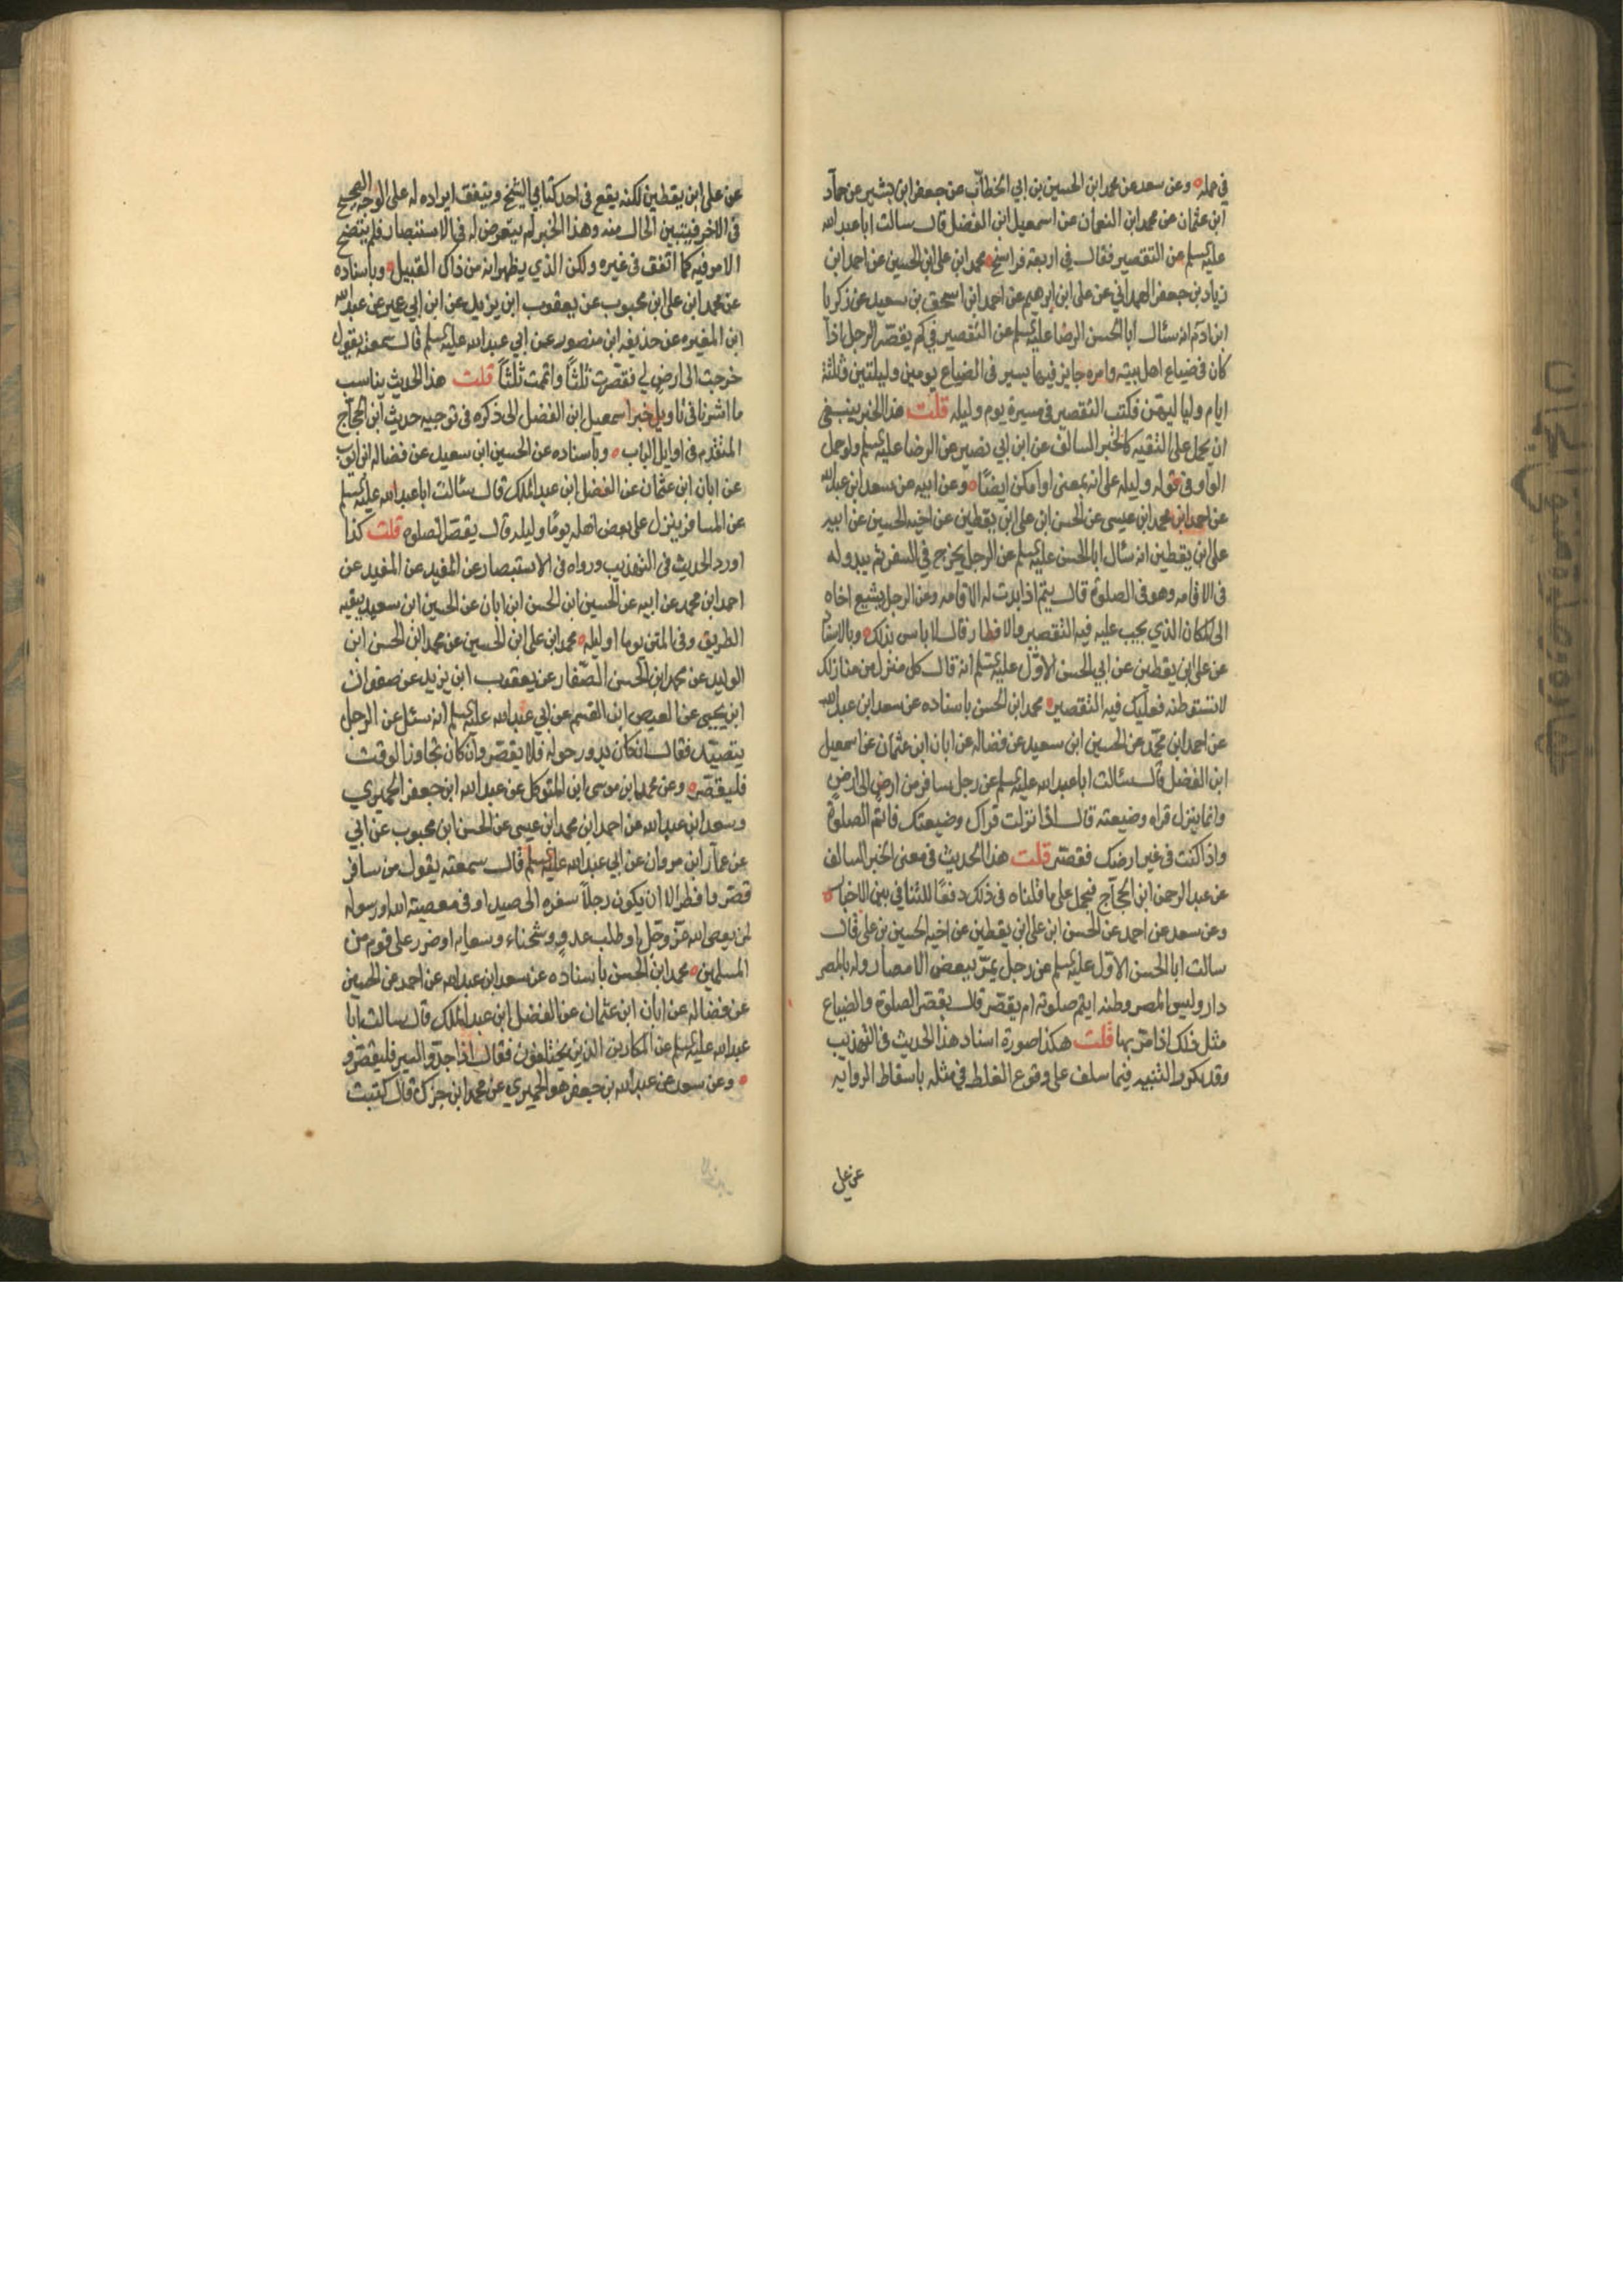 في محله ه وعن سعد عن محمد ابن الحسين بن ابي الخطاب عن جعفر ابن بشير عن حماد
ابن عثمان عن محمد ابن النعمان عن اسمعيل ابن الفضل قال سالت ابا عبد الله
عليه السلم عن التقصير فقال في اربعة فراسخ ه محمد ابن على ابن الحسين عن احمد ابن
زياد بن جعفر الهمداني عن على ابن ابرهيم عن احمد ابن اسحق بن سعيد عن زكريا
ابن ادم انه سئال ابا الحسن الرضا عليه السلم عن التقصير في كم يقصر الرجل اذا
كان في ضياع اهل بيته وامره جايز فيها يسير في الضياع يومين وليلتين وثلثة
ايام ولياليهن فكتب التقصير في مسيرة يوم وليله قلت هذا الخبر ينبغى
ان يحمل على التقيه كالخبر السالف عن ابن ابي نصير عن الرضا عليه السلم ولو حمل
الواو في قوله وليله على انه بمعنى او امكن ايضًا ه وعن ابيه عن سعد ابن عبد الله
عن احمد ابن محمد ابن عيسى عن الحسن ابن على ابن يقطين عن اخيه الحسين عن ابيه
على ابن يقطين انه سئال ابا الحسن عليه السلم عن الرجل يخرج في السفر ثم يبدو له
في الاقامه وهو في الصلوة قال يتم اذا بدت له الاقامه وعن الرجل يشيع اخاه
الى المكان الذي يجب عليه فيه التقصير والافطار قال لا باس بذلك ه وبالاسناد
عن على ابن يقطين عن ابي الحسن الاول عليه السلم انه قال كل منزل من منازلك
لا تستوطنه فعليك فيه التقصير ه محمد ابن الحسن باسناده عن سعد ابن عبد الله
عن احمد ابن محمد عن الحسين ابن سعيد عن فضاله عن ابان ابن عثمان عن اسمعيل
ابن الفضل قال سئالت ابا عبد الله عليه السلم عن رجل سافر من ارض الى ارض
وانما ينزل قراه وضيعته قال اذا نزلت قراك وضيعتك فاتم الصلوة
واذا كنت في غير ارضك فقصر قلت هذا الحديث في معنى الخبر السالف
عن عبد الرحمن ابن الحجاج فيحمل على ما قلناه في ذلك دفعًا للتنافي بين الاخبار ه
وعن سعد عن احمد عن الحسن ابن على ابن يقطين عن اخيه الحسين بن على قال
سالت ابا الحسن الاول عليه السلم عن رجل يمر ببعض الامصار وله بالمصر
دار وليس المصر وطنه ايتم صلوته ام يقصر قال يقصر الصلوة والضياع
مثل ذلك اذا مر بها قلت هكذا صورة اسناد هذا الحديث في التهذيب
وقد تكرر التنبيه فيما سلف على وقوع الغلط في مثله باسقاط الروايه
عن على
عن على ابن يقطين لكنه يقع في احد كتابي الشيخ ويتفق ايراده له على الوجه الصحيح
في الاخر فيتبين الحال منه وهذا الخبر لم يتعرض له في الاستبصار فلم يتضح
الامر فيه كما اتفق في غيره ولكن الذي يظهر انه من ذاك القبيل ه وباسناده
عن محمد ابن على ابن محبوب عن يعقوب ابن يزيد عن ابن ابي عمير عن عبد الله
ابن المغيره عن حذيفه ابن منصور عن ابي عبد الله عليه السلم قال سمعته يقول
خرجت الى ارض لي فقصرت ثلثًا واتممت ثلثًا قلت هذا الحديث يناسب
ما اشرنا في تاويل خبر اسمعيل ابن الفضل الى ذكره في توجيه حديث ابن الحجاج
المتقدم في اوايل الباب ه وباسناده عن الحسين ابن سعيد عن فضاله ابن ايوب
عن ابان ابن عثمان عن الفضل ابن عبد الملك قال سئالت ابا عبد الله عليه السلم
عن المسافر ينزل على بعض اهله يومًا وليله قال يقصر الصلوه قلت كذا
اورد الحديث في التهذيب ورواه في الاستبصار عن المفيد عن المفيد عن
احمد ابن محمد عن ابيه عن الحسين ابن الحسن ابن ابان عن الحسين ابن سعيد ببقيه
الطريق وفي المتن يوما او ليله ه محمد ابن على ابن الحسين عن محمد ابن الحسن ابن
الوليد عن محمد ابن الحسن الصفار عن يعقوب ابن يزيد عن صفوان
ابن يحيى عن العيص ابن القسم عن ابي عبد الله عليه السلم انه سئل عن الرجل
يتصيد فقال ان كان يدور حوله فلا يقصر وان كان تجاوز الوقت
فليقصر ه وعن محمد ابن موسى ابن المتوكل عن عبد الله ابن جعفر الحميري
وسعد ابن عبد الله عن احمد ابن محمد ابن عيسى عن الحسن ابن محبوب عن ابي
عن عمار ابن مروان عن ابي عبد الله عليه السلم قال سمعته يقول من سافر
قصر وافطر الا ان يكون رجلاً سفره الى صيد او في معصيته الله او رسوله
لمن يعصى الله عز وجل او طلب عدو وشحناء وسعايه او ضرر على قوم من
المسلمين ه محمد ابن الحسن باسناده عن سعد ابن عبد الله عن احمد عن الحسين
عن فضاله عن ابان ابن عثمان عن الفضل ابن عبد الملك قال سالت ابا
عبد الله عليه السلم عن المكارين الذين يختلفون فقال اذا جدوا السير فليقصروا
ه وعن سعد عن عبد الله بن جعفر هو الحميري عن محمد ابن جزك قال كتبت